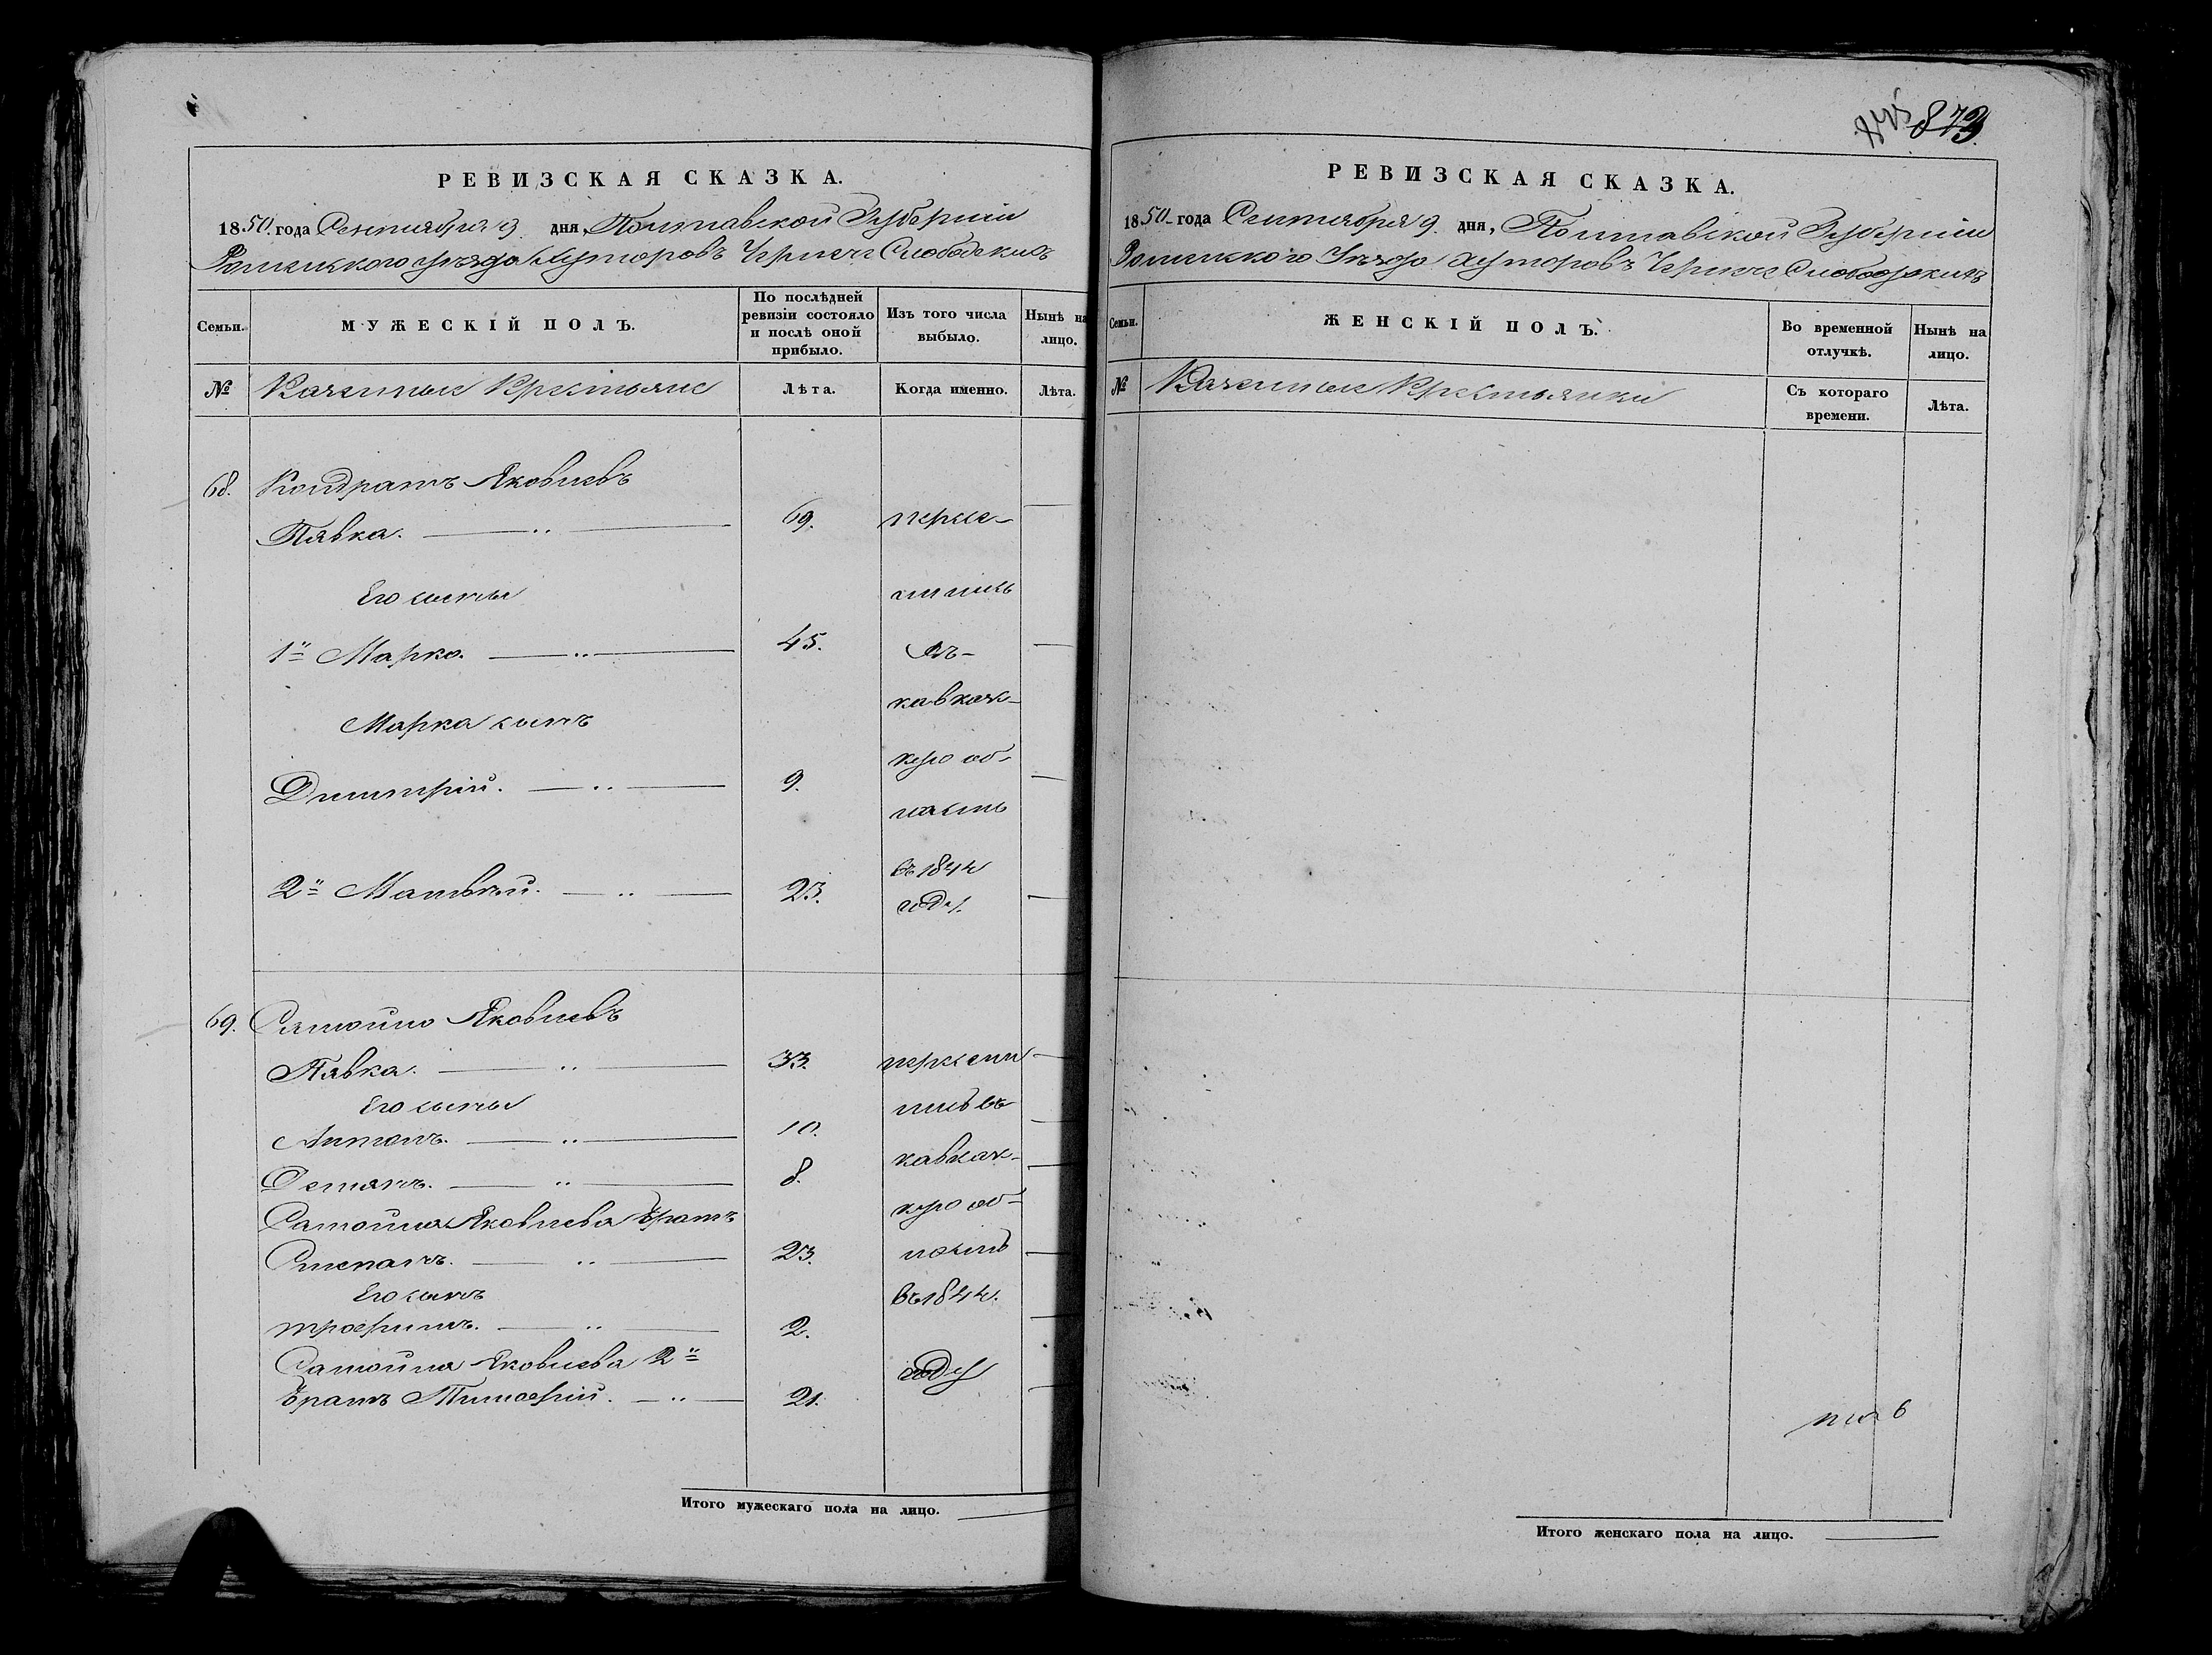 РЕВИЗСКАЯ СКАЗКА.
1850 года Сентября 9 дня, Полтавской Губерніи
Роменского уѣзда Хуторовъ Черпече Слободскихъ
Семьи.
МУЖЕСКІЙ ПОЛЪ.
По послѣдней ревизіи состояло и послѣ оной прибыло.
Изъ того числа выбыло.
Нынѣ на лицо.
№
Казенные Крестьяне
Лѣта.
Когда именно.
Лѣта.
68. Кондратъ Яковлевъ
Пявка. 69. пересе-
Его сыны лились
1й Марко. 45. въ-
кавказ-
Марка сынъ
кую об-
Димитрій. 9.
ласть
въ 1844
2й Матвѣй. 23.
году.
69. Самойло Яковлевъ
Пявка. 33. переели
Его сыны лись въ
Антонъ. 10.
кавказ-
Демянъ. 8.
кую об-
Самойла Яковлева братъ
Степанъ. 23. ласть
Его сынъ въ 1844.
трофимъ. 2.
Самойла Яковлева 2й
году
братъ Тимофій. 21.
Итого мужескаго пола на лицо.
873
РЕВИЗСКАЯ СКАЗКА.
1850 года Сентября 9. дня, Полтавской Губерніи
Роменского Уѣзда хуторовъ Черпече Слободскихъ
Семьи.
ЖЕНСКІЙ ПОЛЪ.
Во временной отлучкѣ.
Нынѣ на лицо.
№
Казенные Крестьянки
Съ котораго времени.
Лѣта.
6
Итого женскаго пола на лицо.